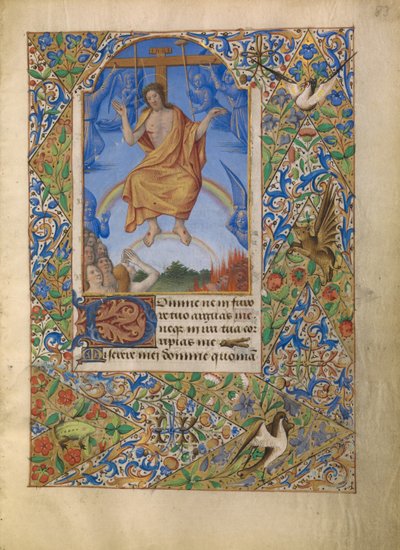 Domine ne in furo
re tuo arguas me.
neqз in ira tua cor
ripias me
Miserere mei domine quoniā